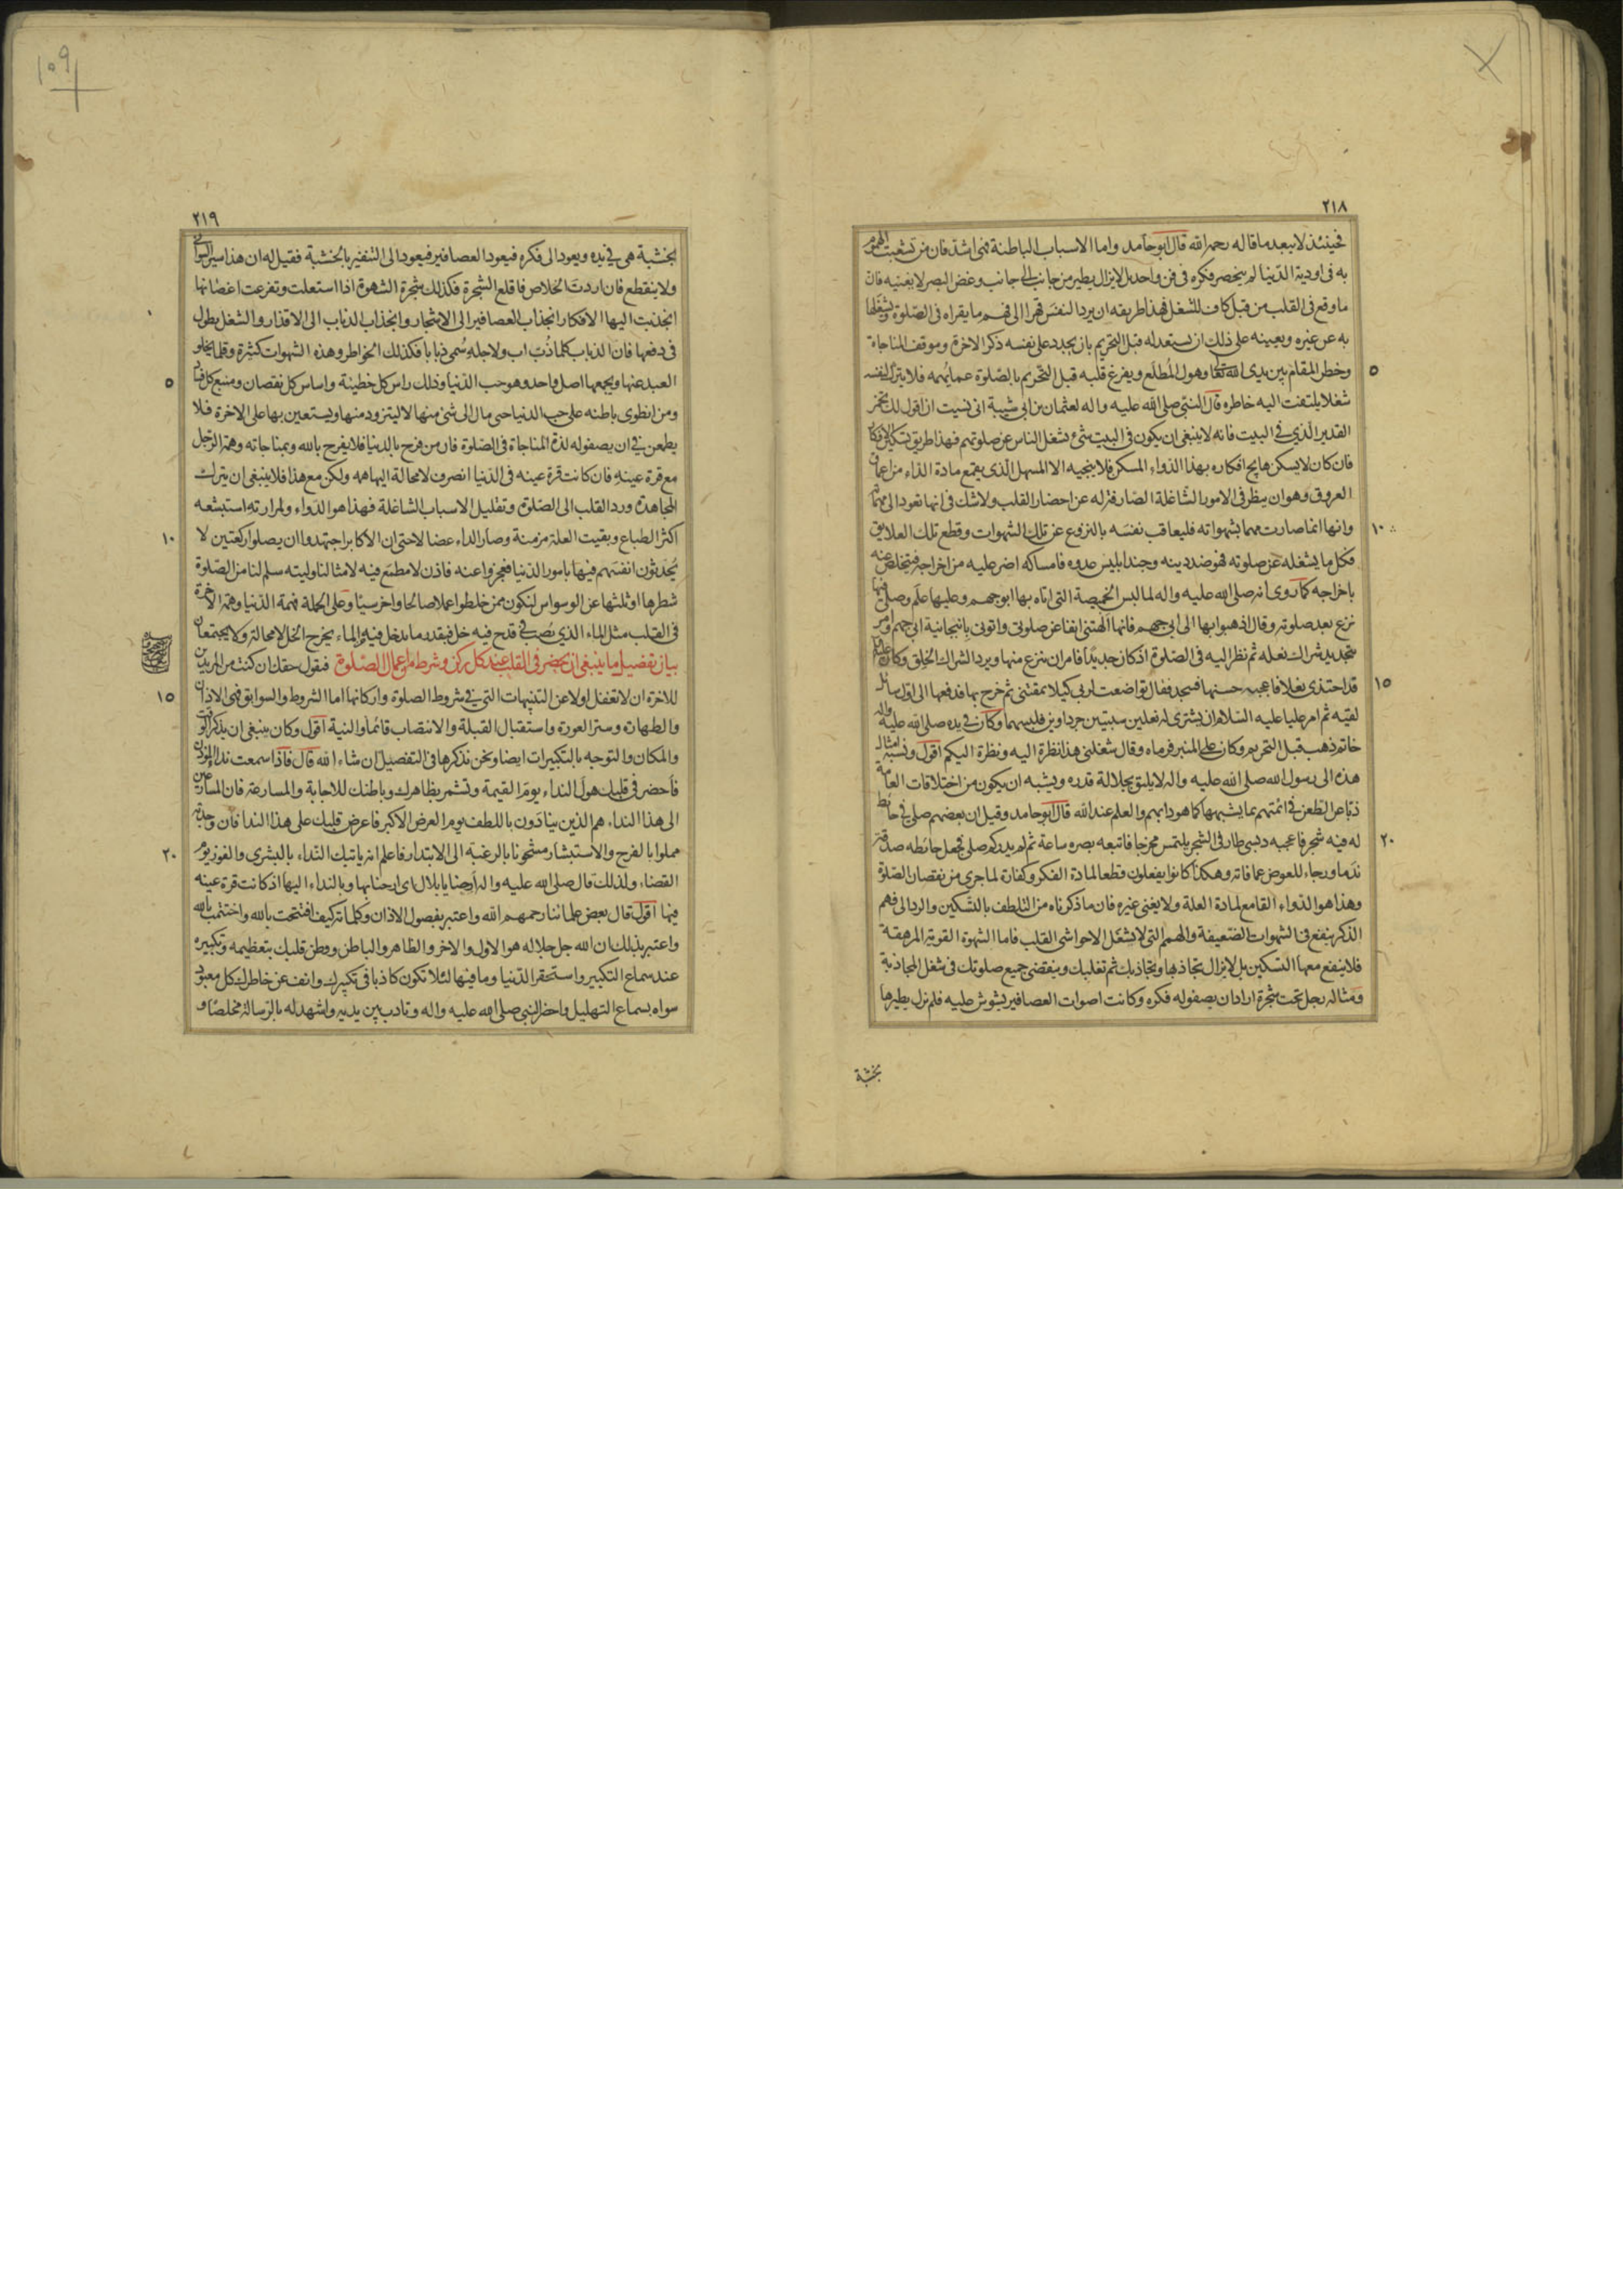 ٢١٨
فحينئذ لا يبعد ما قاله رحمه الله قال ابو حامد واما الاسباب الباطنة فهى اشد فان من تشعبت الهموم
به فى اودية الدنيا لم ينحصر فكره فى فن واحد بل لا يزال يطير من جانب الى جانب وغض البصر لا يغنيه فان
ما وقع فى القلب من قبل كاف للشغل فهذا طريقه ان يرد النفس قهرا الى فهم ما يقراه فى الصلوة ويشغلها
به عن غيره ويعينه على ذلك ان يستعد له قبل التحريم بان يجدد على نفسه ذكر الاخرة وموقف المناجاة
٥ وخطر المقام بين يدى الله تعالى وهول المطلع ويفرغ قلبه قبل التحريم بالصلوة عما يهمه فلا يترك لنفسه
شغلا يلتفت اليه خاطره قال النبي صلى الله عليه واله لعثمان بن ابى شيبة انى نسيت ان اقول لك تخمر
القدير الذي في البيت فانه لا ينبغى ان يكون فى البيت شئ يشغل الناس عن صلوتهم فهذا طريق تسكين الافكار
فان كان لا يسكن هايج افكاره بهذا الدواء المسكن فلا ينجيه الا المسهل الذى يقمع مادة الداء من اعماق
العروق وهو ان ينظر فى الامور الشاغلة الصارفة له عن احضار القلب ولا شك فى انها تعود الى مهماته
١٠ وانها انما صارت مهما بشهواته فليعاقب نفسه بالنزوع عن تلك الشهوات وقطع تلك العلايق
فكل ما يشغله عن صلوته فهو ضد دينه وجند ابليس عدوه فامساكه اضر عليه من اخراجه فيتخلص عنه
باخراجه كما روى انه صلى الله عليه واله لما لبس الخميصة التى اتاه بها ابو جهم وعليها علم وصلى فيها
نزع بعد صلوته وقال اذهبوا بها الى ابى جهم فانها الهتنى انفا عن صلوتى واتونى بانبجانية ابى جهم وامر
بتجديد شراك نعله ثم نظر اليه فى الصلوة اذ كان جديدا فامر ان ينزع منها ويرد الشراك الخلق وكان عليه السلام
١٥ قد احتذى نعلا فاعجبه حسنها فسجد فقال تواضعت لربى كيلا يمقتنى ثم خرج بها فدفعها الى اول سائل
لقيه ثم امر عليا عليه السلام ان يشترى له نعلين سبتيتين جرداوين فلبسهما وكان في يده صلى الله عليه واله
خاتم ذهب قبل التحريم وكان على المنبر فرماه وقال شغلنى هذا نظرة اليه ونظرة اليكم اقول ونسبة امثال
هذه الى رسول الله صلى الله عليه واله لا يليق بجلالة قدره ويشبه ان يكون من اختلاقات العامة
ذبا عن الطعن في ائمتهم بما يشبهها كما هو دابهم والعلم عند الله قال ابو حامد وقيل ان بعضهم صلى في حائط
٢٠ له فيه شجر فاعجبه دبسى طار فى الشجر يلتمس مخرجا فاتبعه بصره ساعة ثم لم يدر كم صلى فجعل حائطه صدقة
ندما ورجاء للعوض عما فاته وهكذا كانوا يفعلون قطعا لمادة الفكر وكفارة لما جرى من نقصان الصلوة
وهذا هو الدواء القامع لمادة العلة ولا يغنى غيره فان ما ذكرناه من التلطف بالتسكين والرد الى فهم
الذكر ينفع فى الشهوات الضعيفة والهمم التى لا تشغل الا حواشى القلب فاما الشهوة القوية المرهقة
فلا ينفع معها التسكين بل لا يزال تجاذبها وتجاذبك ثم تغلبك وينقضى جميع صلوتك فى شغل المجاذبة
ومثاله رجل تحت شجرة اراد ان يصفو له فكره وكانت اصوات العصافير يشوش عليه فلم يزل يطيرها
بخشبة
١٠٩
٢١٩
بخشبة هى في يده ويعود الى فكره فيعود العصافير فيعود الى التنفير بالخشبة فقيل له ان هذا سير السوانى
ولا ينقطع فان اردت الخلاص فاقلع الشجرة فكذلك شجرة الشهوة اذا استعلت وتفرعت اغصانها
انجذبت اليها الافكار انجذاب العصافير الى الاشجار وانجذاب الذباب الى الاقذار والشغل يطول
فى دفعها فان الذباب كلما ذب اب ولاجله سمى ذبابا فكذلك الخواطر وهذه الشهوات كثيرة وقلما يخلو
٥ العبد عنها ويجمعها اصل واحد وهو حب الدنيا وذلك راس كل خطيئة واساس كل نقصان ومنبع كل فساد
ومن انطوى باطنه على حب الدنيا حتى مال الى شئ منها لا ليتزود منها ويستعين بها على الاخرة فلا
يطمعن في ان يصفو له لذة المناجاة فى الصلوة فان من فرح بالدنيا فلا يفرح بالله وبمناجاته وهمة الرجل
مع قرة عينه فان كانت قرة عينه فى الدنيا انصرف لا محالة اليها همه ولكن مع هذا فلا ينبغى ان يترك
المجاهدة ورد القلب الى الصلوة وتقليل الاسباب الشاغلة فهذا هو الدواء ولمرارته استبشعه
١٠ اكثر الطباع وبقيت العلة مزمنة وصار الداء عضالا حتى ان الاكابر اجتهدوا ان يصلوا ركعتين لا
يحدثون انفسهم فيها بامور الدنيا فعجزوا عنه فاذن لا مطمع فيه لامثالنا وليته سلم لنا من الصلوة
شطرها او ثلثها عن الوسواس لنكون ممن خلطوا عملا صالحا واخر سيئا وعلى الجملة فهمة الدنيا وهمة الاخرة
فى القلب مثل الماء الذي يصب في قدح فيه خل فبقدر ما يدخل فيه الماء يخرج الخل لا محالة ولا يجتمعان
بيان تفصيل ما ينبغى ان يحضر فى القلب عند كل ركن وشرط من اعمال الصلوة فنقول حقك ان كنت من المريدين
١٥ للاخرة ان لا تغفل اولا عن التنبيهات التى في شروط الصلوة واركانها اما الشروط والسوابق فهى الاذان
والطهارة وستر العورة واستقبال القبلة والانتصاب قائما والنية اقول وكان ينبغى ان يذكر الوقت
والمكان والتوجه بالتكبيرات ايضا ونحن نذكرها فى التفصيل ان شاء الله قال فاذا سمعت نداء المؤذن
فاحضر فى قلبك هول النداء يوم القيمة وتشمر بظاهرك وباطنك للاجابة والمسارعة فان المسارعين
الى هذا النداء هم الذين ينادون باللطف يوم العرض الاكبر فاعرض قلبك على هذا النداء فان وجدته
٢٠ مملوا بالفرح والاستبشار مشحونا بالرغبة الى الابتدار فاعلم انه ياتيك النداء بالبشرى والفوز يوم
القضاء ولذلك قال صلى الله عليه واله ارحنا يا بلال اى ارحنا بها وبالنداء اليها اذ كانت قرة عينه
فيها اقول قال بعض علمائنا رحمهم الله واعتبر بفصول الاذان وكلماته كيف افتتحت بالله واختتمت بالله
واعتبر بذلك ان الله جل جلاله هو الاول والاخر والظاهر والباطن ووطن قلبك بتعظيمه وتكبيره
عند سماع التكبير واستحقر الدنيا وما فيها لئلا تكون كاذبا فى تكبيرك وانف عن خاطرك كل معبود
سواه بسماع التهليل واحضر النبى صلى الله عليه واله وتادب بين يديه واشهد له بالرسالة مخلصا و